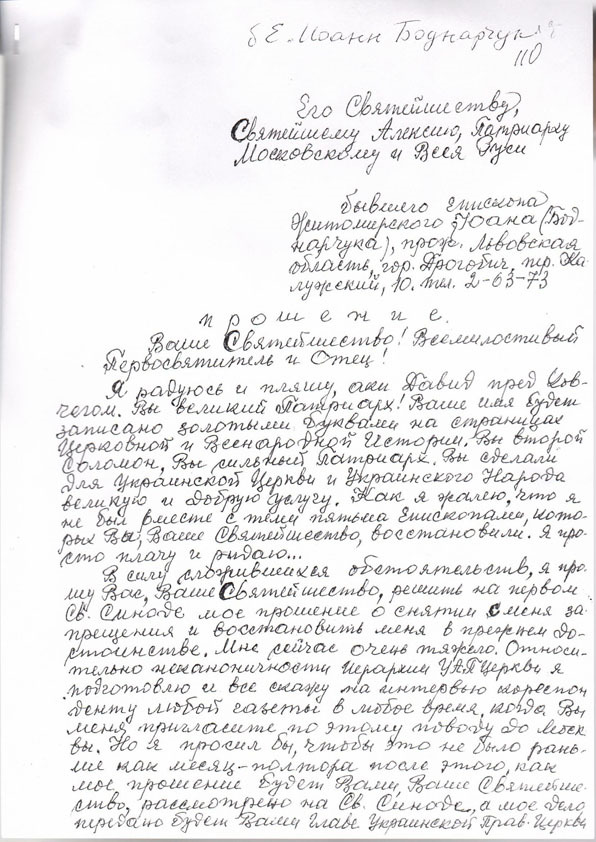 б Е. Иоанн Боднарчук
110
Его Святейшеству,
Святейшему Алексию, Патриарху
Московскому и Всея Руси
бывшего епископа
Житомирского Иоана (Бод-
нарчука), прож. Львовская
область, гор. Дрогобич, пр. Ка-
лужский, 10. тел. 2-63-73
прошение.
Ваше Святейшество! Всемилостивый
Первосвятитель и Отец!
Я радуюсь и пляшу, аки Давид пред Ков-
чегом. Вы великий Патриарх! Ваше имя будет
записано золотыми буквами на страницах
Церковной и Всенародной Истории. Вы второй
Соломон, Вы сильный Патриарх. Вы сделали
для Украинской Церкви и Украинского Народа
великую и добрую услугу. Как я жалею, что я
не был вместе с теми пятьма Епископами, кото-
рых Вы, Ваше Святейшество, восстановили. Я про-
сто плачу и рыдаю...
В силу сложившихся обстоятельств, я про-
шу Вас, Ваше Святейшество, решить на первом
Св. Синоде мое прошение о снятии с меня за-
прещения и восстановить меня в прежнем до-
стоинстве. Мне сейчас очень тяжело. Относи-
тельно неканоничности Иерархии УАПЦеркви я
подготовлю и все скажу на интервью кореспон
денту любой газеты в любое время, когда Вы
меня пригласите по этому поводу до Моск
вы. Но я просил бы, чтобы это не было рань-
ше как месяц-полтора после этого, как
мое прошение будет Вами, Ваше Святейше-
ство, рассмотрено на Св. Синоде, а мое дело
передано будет Вами Главе Украинской Прав. Церкви